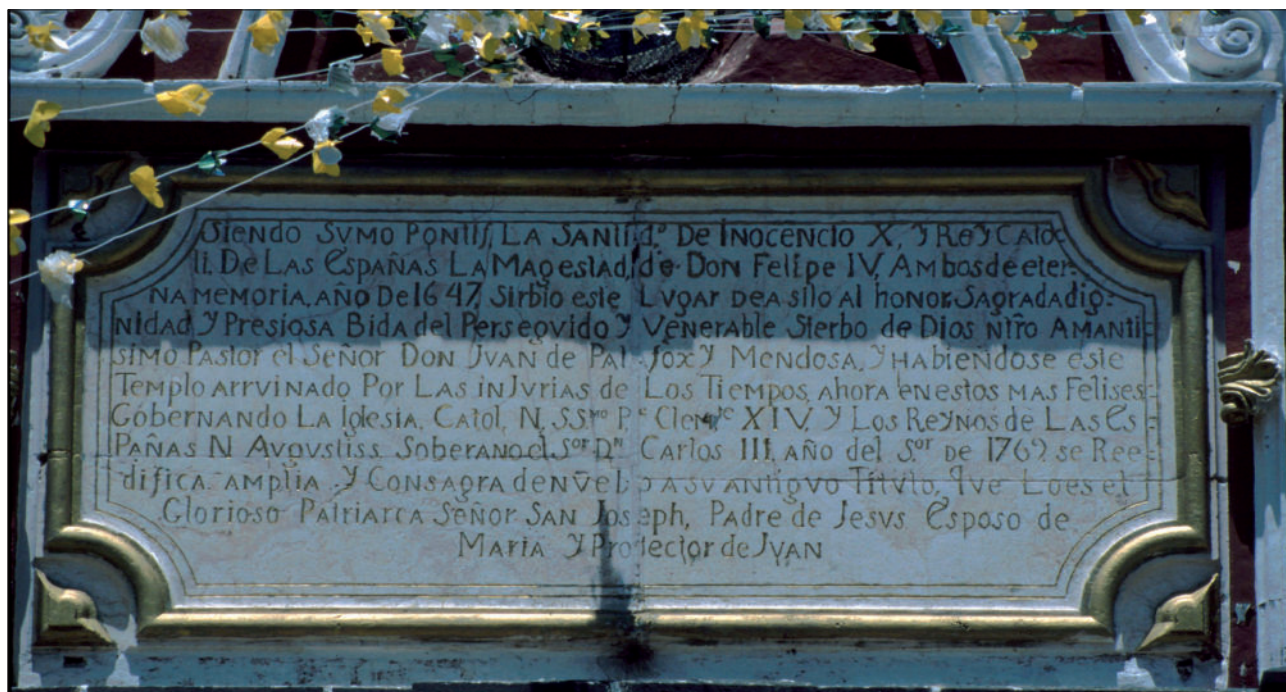 SIENDO SVMO PONTIf, LA SANtId.º De INOCENCIO X, Y ReY CAtO-
li. De LAS ESPAÑAS LA MAgestad, de DON FelIpe IV, AmbOs de eter-
NA MEMORIA, AÑO De 1647, SIrbIO este LVgAr DE ASIlO Al hONOr SAgrada dIg-
NIdad Y PresIosA BIdA del PersegVIdo Y VeNerAble SIerbo de DIos Ntrō AmANtI-
sImo PAstor el Señor DON JVAN de PAlAfOX Y MeNdosA, Y HAbIeNdose este
Templo ArrVINAdo Por LAS INJVrIAS de Los TIempos, ahorA eN estos MAS FelIses
GoberNANdo LA IglesIA, CAtol, N, SSmo P.e Clemte XIV, Y Los ReyNos de LAS ES-
PAÑAS N AVgVstIss SoberANo el Sor Dn CArlos III, AÑO del Sor DE 1769 se Ree-
dIfIcA AmplIA Y CoNsAgrA de NVebo A SV ANtIgVo TItVlo, qVe Lo es el
GlorIoso PAtrIArcA Señor SAN Joseph, PAdre de JesVs Esposo de
MArIA Y Protector de JVAN